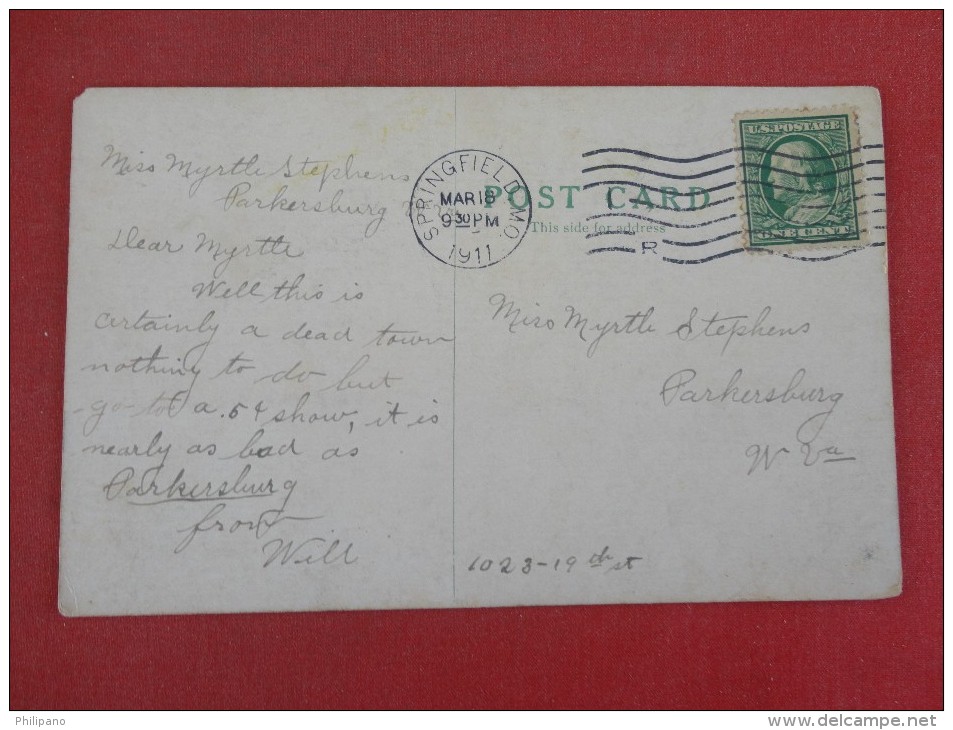 Miss Myrtle Stephens
Parkersburg
Dear Myrtle
Well this is
certainly a dead town
nothing to do but
go to a .5¢ show, it is
nearly as bad as
Parkersburg
from
Will
SPRINGFIELD, MO.
MAR 18
9 30 PM
1911
R
U.S. POSTAGE
ONE CENT
POST CARD
This side for address
Miss Myrtle Stephens
Parkersburg
W Va
1023-19th st
Philipano
www.delcampe.net